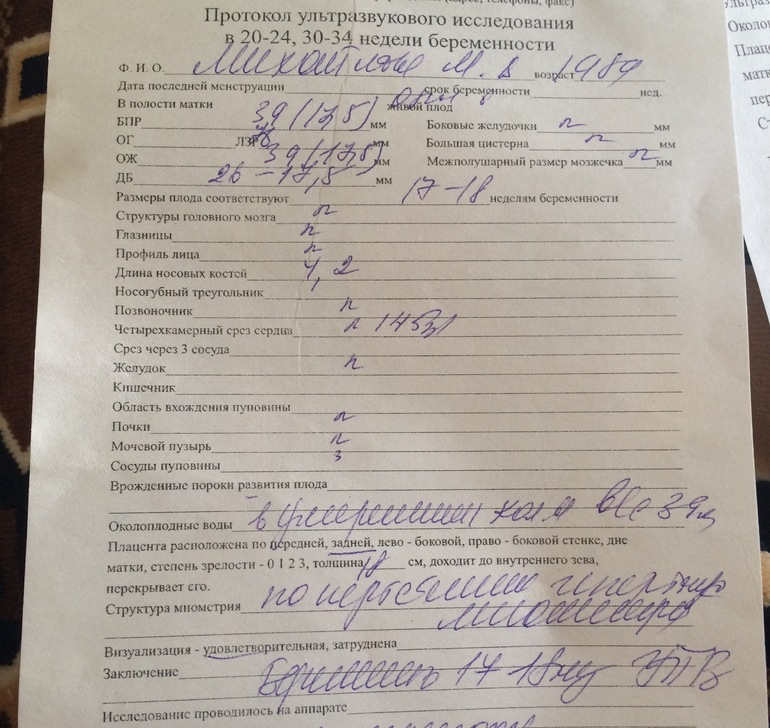 (адрес, телефоны, факс)
Протокол ультразвукового исследования
в 20-24, 30-34 недели беременности
Ф. И. О. М. В возраст 1989
Дата последней менструации срок беременности нед.
В полости матки живой плод
БПР 39 (17,5) мм Боковые желудочки n мм
ОГ ЛЗР мм Большая цистерна n мм
ОЖ 39 (17,5) мм Межполушарный размер мозжечка n мм
ДБ 26 – 17,5 мм
Размеры плода соответствуют 17–18 неделям беременности
Структуры головного мозга n
Глазницы n
Профиль лица n
Длина носовых костей 4,2
Носогубный треугольник
Позвоночник n
Четырехкамерный срез сердца n 145
Срез через 3 сосуда
Желудок n
Кишечник
Область вхождения пуповины
Почки n
Мочевой пузырь n
Сосуды пуповины 3
Врожденные пороки развития плода
Околоплодные воды в умеренном кол
Плацента расположена по передней, задней, лево - боковой, право - боковой стенке, дне
матки, степень зрелости - 0 1 2 3, толщина 18 см, доходит до внутреннего зева,
перекрывает его.
Структура миометрия по передней гипертонус
миометрия
Визуализация - удовлетворительная, затруднена
Заключение Беременность 17 18 нед
Исследование проводилось на аппарате
Около
Плаце
матк
пер